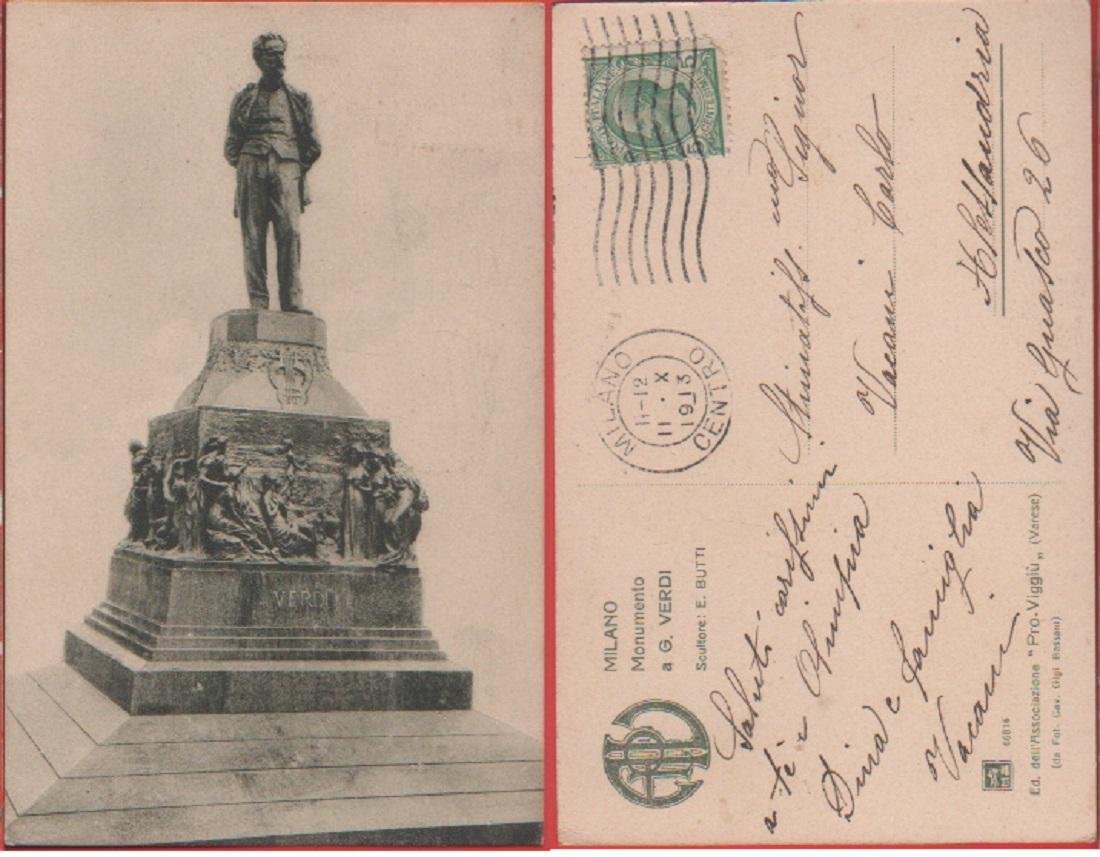 VERDI
POSTE ITALIANE
5 CENTESIMI 5
MILANO
CENTRO
11-12
11 . X
1913
MILANO
Monumento
a G. VERDI
Scultore: E. BUTTI
Saluti carissimi
a te e
Dina e famiglia
Vacani
Stimatiss. mo Signor
Vacani Carlo
Alessandria
Via Guasco 26
66816
Ed. dell'Associazione "Pro-Viggiù„ (Varese)
(da Fot. Cav. Gigi Bassani)